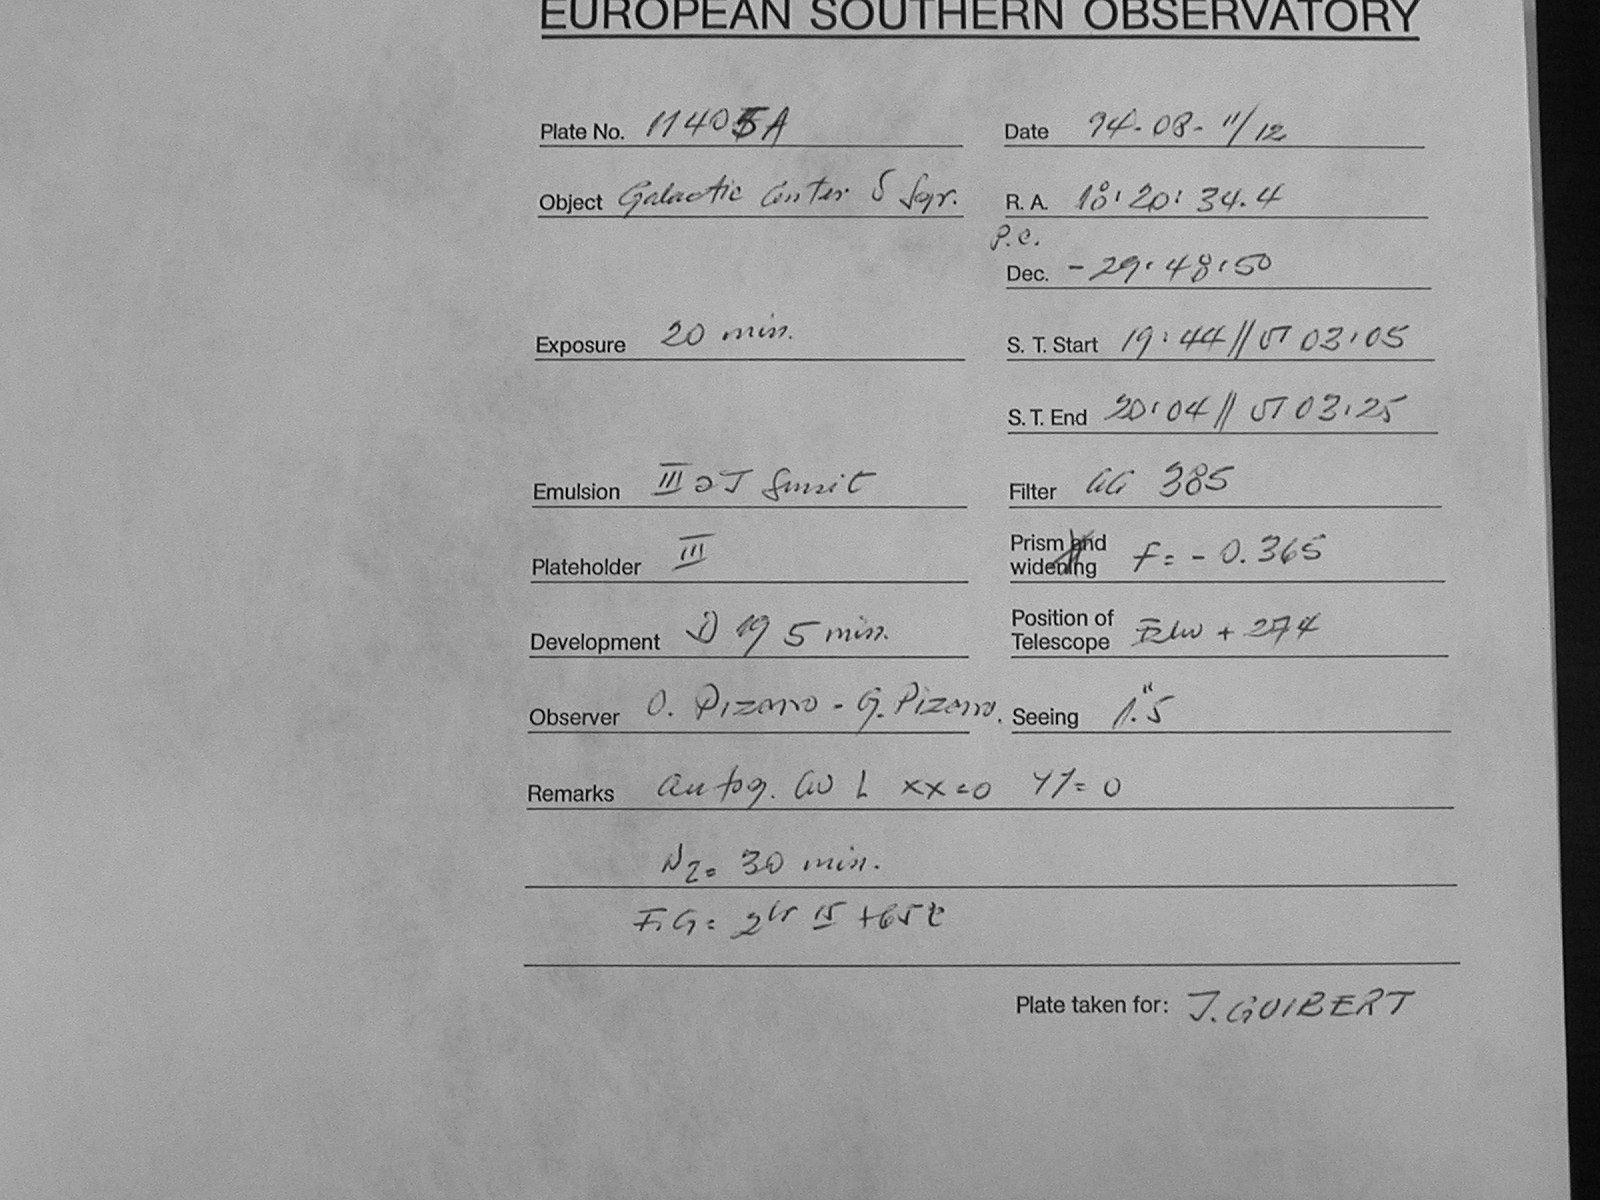 EUROPEAN SOUTHERN OBSERVATORY
Plate No. 11405A Date 94-08-11/12
Object Galactic Center 5 Sgr. R. A. 18:20:34.4
P.C.
Dec. -29:48:50
Exposure 20 min. S. T. Start 19:44 // UT 03:05
S. T. End 20:04 // UT 03:25
Emulsion III aJ Filter GG 385
Plateholder III Prism and widening F= -0.365
Development D 19 5 min. Position of Telescope + 274
Observer O. Pizarro - G. Pizarro. Seeing 1."5
Remarks autog. xx=0 YY=0
N2= 30 min.
F.G= +65
Plate taken for: J. GUIBERT